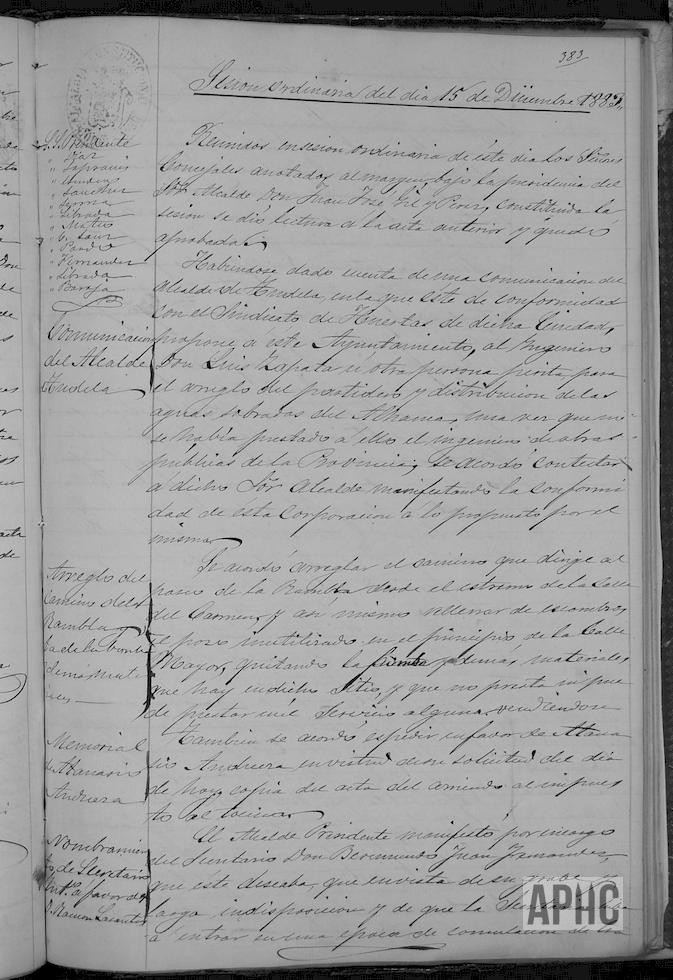 383
Sesion ordinaria del dia 15 de Diciembre 1883,,
S.S. Presidente
" Sanchez
" Lerma
" Librada
" Mateo
" Pardo
" Fernandez
" Librada
" Baraja
Reunidos en sesion ordinaria de este dia los Señores
Concejales anotados al margen, bajo la presidencia del
Sor. Alcalde Don Juan José Gil y Perez, constituida la
sesion se dio lectura a la acta anterior y quedó
aprobada.
Comunicacion
del Alcalde
Tudela
Habiendose dado cuenta de una comunicacion del
Alcalde de Tudela, en la que éste de conformidad
con el Sindicato de Huertas de dicha Ciudad,
propone a este Ayuntamiento, al Ingeniero
Don Luis Zapata ú otra persona perita para
el arreglo del partidero y distribucion de las
aguas sobradas del Alhama, una vez que no
se había prestado a ello el ingeniero de obras
públicas de la Provincia, se acordó contestar
a dicho Sor Alcalde manifestando la conformi
dad de esta Corporacion a lo propuesto por el
mismo.
Arreglo del
camino de la
Rambla y
de la bomba
demas mate
riales
Se acordó arreglar el camino que dirige al
paseo de la Rambla desde el estremo de la Calle
del Carmen, y asi mismo rellenar de escombros
el pozo inutilizado en el principio de la Calle
Mayor, quitando la bomba y demas materiales
que hay en dicho sitio, y que no presta ni pue
de prestar util servicio alguno, vendiendose
Memorial
de Atanasio
Andueza
Tambien se acordó espedir en favor de Atana
sio Andueza en virtud de su solicitud del dia
de hoy, copia del acta del arriendo al impues
to al tocino.
Nombramien
to de Secretario
Int.o a favor de
D. Ramon
El Alcalde Presidente manifestó por encargo
del Secretario Don Beremundo Juan Fernandez,
que este deseaba, que en vista de su grave y
larga indisposicion y de que la
a entrar en una epoca de
APHC